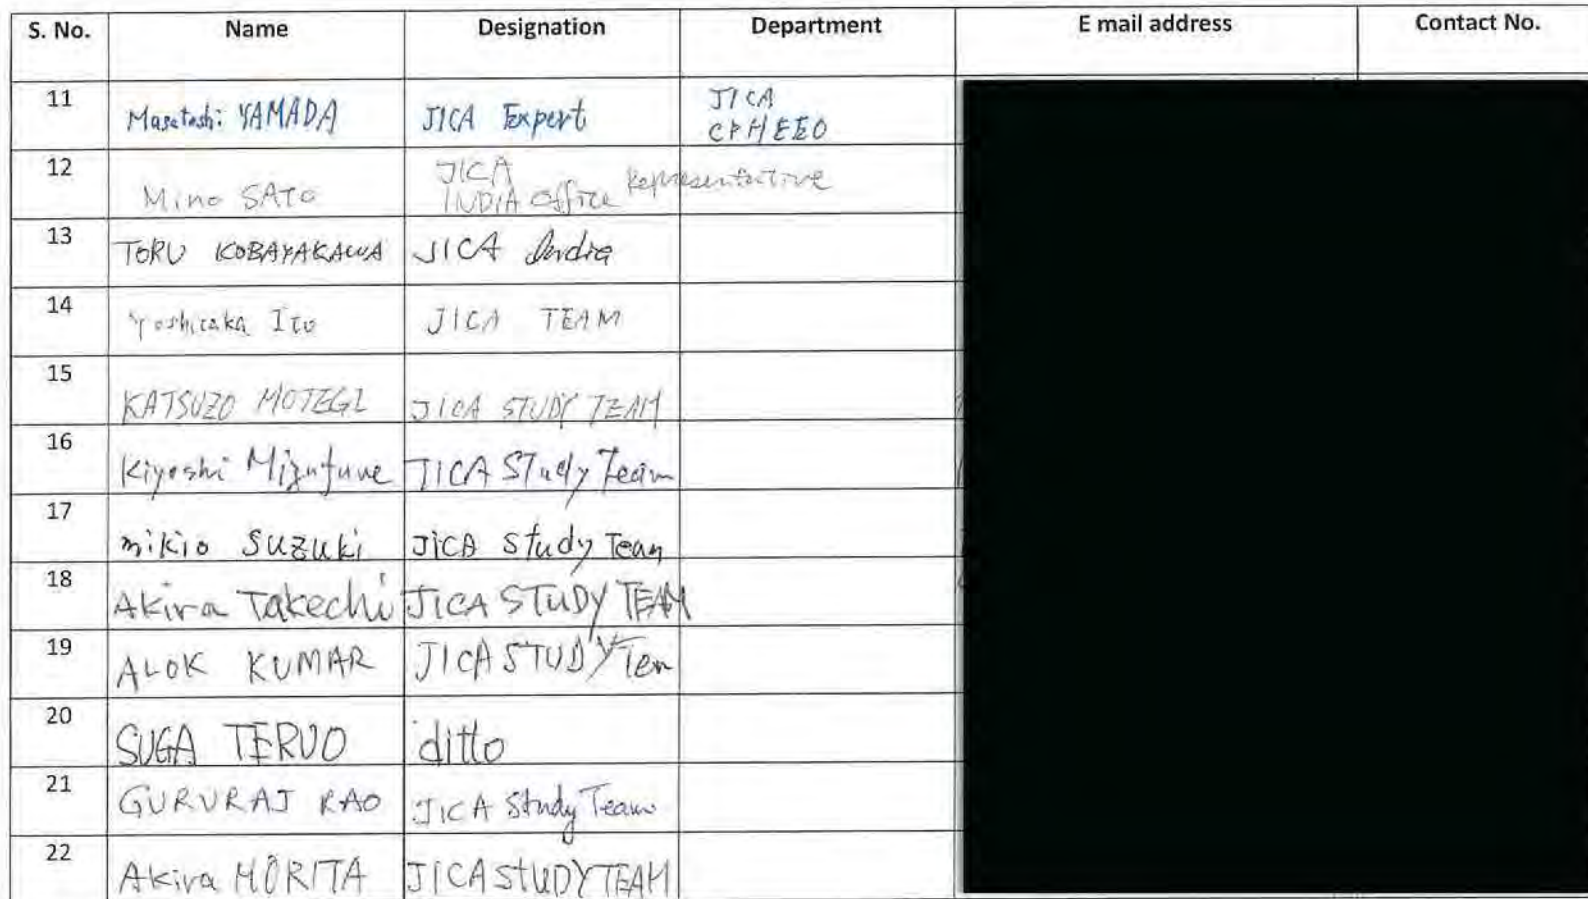 S. No. Name Designation Department E mail address Contact No.
11 Masatoshi YAMADA JICA Expert JICA CPHEEO
12 Mino SATO JICA INDIA Office Representative
13 TORU KOBAYAKAWA JICA India
14 Yoshitaka Ito JICA TEAM
15 KATSUZO MOTEGI JICA STUDY TEAM
16 Kiyoshi Mizufune JICA STudy Team
17 mikio SUZUKi JiCA Study Team
18 Akira Takechi JICA STUDY TEAM
19 ALOK KUMAR JICA STUDY Tem
20 SUGA TERUO ditto
21 GURURAJ RAO JICA Study Team
22 Akira MORITA JICA StUDY TEAM